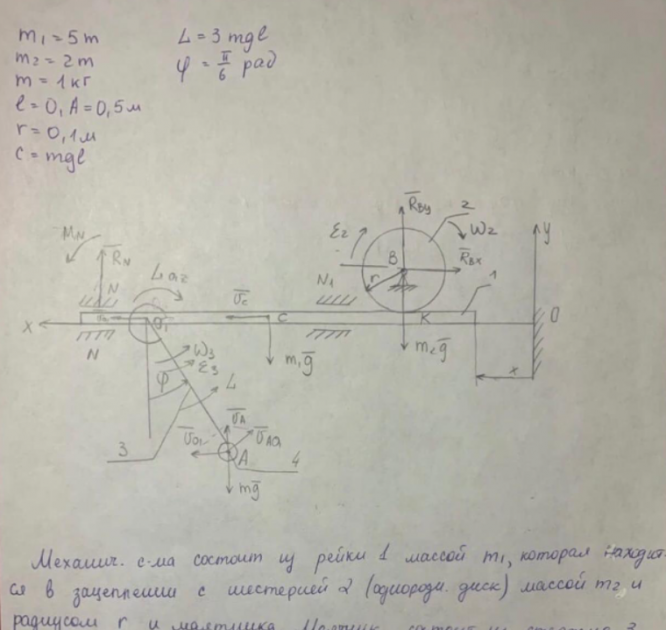 m₁ = 5m
m₂ = 2m
m = 1 кг
ℓ = O₁A = 0,5 м
r = 0,1 м
c = mgℓ
L = 3 mgℓ
φ = π/6 рад
R̅By
2
ε₂
ω₂
y
B
R̅Bx
MN
R̅N
N
r
N₁
1
v̅c
O
x
O₁
C
K
N
m₁g̅
x
ω₃
ε₃
φ
L
v̅A
3
A
4
mg̅
Механич. с-ма состоит из рейки 1 массой m₁, которая находит-
ся в зацеплении с шестерней 2 (однородн. диск) массой m₂ и
радиусом r и маятника.